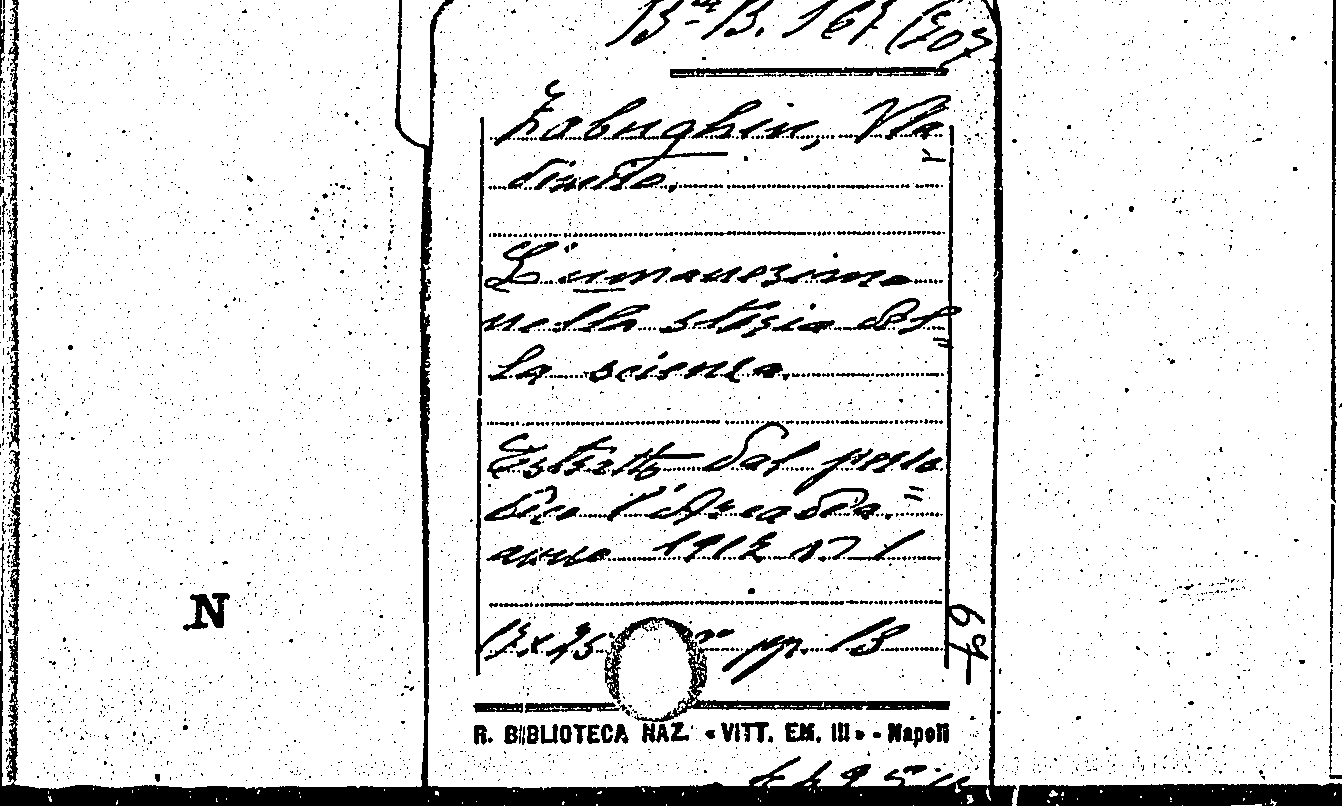 Bª B. 167 (203
Zabughin, Vla
dimiro.
L'umanesimo
nella storia del
la scienza.
Estratto dal perio
dico l'Arcadia.
anno 1912 n. 1
N
pp. 18
79
R. BIBLIOTECA NAZ. «VITT. EM. III» - Napoli